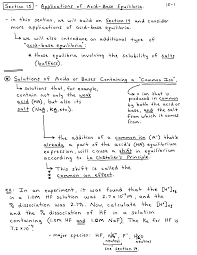 Section 15 Applications of Acid-Base Equilibria. 15-1
- in this section, we will build on Section 14 and consider
more applications of acid-base equilibria.
↳ we will also introduce an additional type of
"acid-base equilibria":
* those equilibria involving the solubility of salts
(buffers).
Solutions of Acids or Bases Containing a "Common Ion".
↳ solutions that, for example,
contain not only the weak
acid (HA), but also its
salt (NaA, KA, etc).
↳ an ion that is
produced in common
by both the acid or
base, and the salt
from which it comes
from.
↳ the addition of a common ion (A⁻) that's
already a part of the acid's (HA) equilibrium
expression, will cause a shift in equilibrium
according to Le Châtelier's Principle.
↳ This shift is called the
common ion effect.
ex: In an experiment, it was found that the [H⁺]eq
in a 1.0M HF solution was 2.7 x 10⁻² M, and the
% dissociation was 2.7%. Now, calculate the [H⁺]eq
and the % dissociation of HF in a solution
containing 1.0M HF and 1.0M NaF. The Ka for HF is
7.2 x 10⁻⁴
- major species: HF, Na⁺, F⁻, H₂O
neutral neutral
see Section 14.